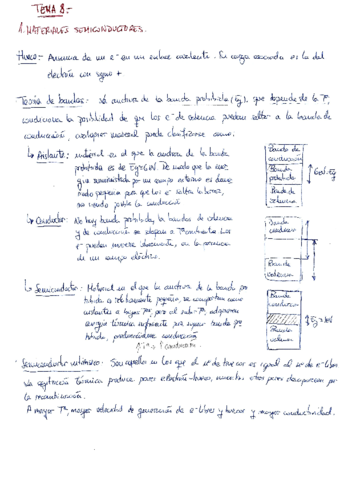 TEMA 8.-
1. MATERIALES SEMICONDUCTORES.
Hueco: Ausencia de un e- en un enlace covalente. Su carga asociada es la del
electrón con signo +
Teoría de bandas: la anchura de la banda prohibida (Eg), que depende de la Tª,
condiciona la posibilidad de que los e- de valencia puedan saltar a la banda de
conducción, cualquier material puede clasificarse como:
↳ Aislante: material en el que la anchura de la banda
prohibida es de Eg≈6eV. De modo que la
suministrada por un campo externo es
pequeña para que los e- salten la barrera,
no siendo posible la conducción.
Banda de
conducción
Banda
prohibida
Banda de
valencia
6eV=Eg
↳ Conductor: No hay banda prohibida, la bandas de valencia
y de conducción se solapan a Tª ambiente. Los
e- pueden moverse libremente, en la presencia
de un campo eléctrico.
Banda
conducción
Banda
valencia
↳ Semiconductor: Material en el que la anchura de la banda pro-
hibida es relativamente pequeña, se comportan como
aislantes a bajas Tªs, pero al subir Tª, adquieren
energía térmica suficiente para superar banda pro-
hibida, produciéndose conducción.
Banda
conducción
Banda
valencia
Semiconductor intrínseco: Son aquellos en los que el nº de huecos es igual al nº de e- libres
La agitación térmica produce pares electrón-hueco, mientras otros pares desaparecen por
la recombinación.
A mayor Tª, mayor velocidad de generación de e- libres y huecos y mayor conductividad.